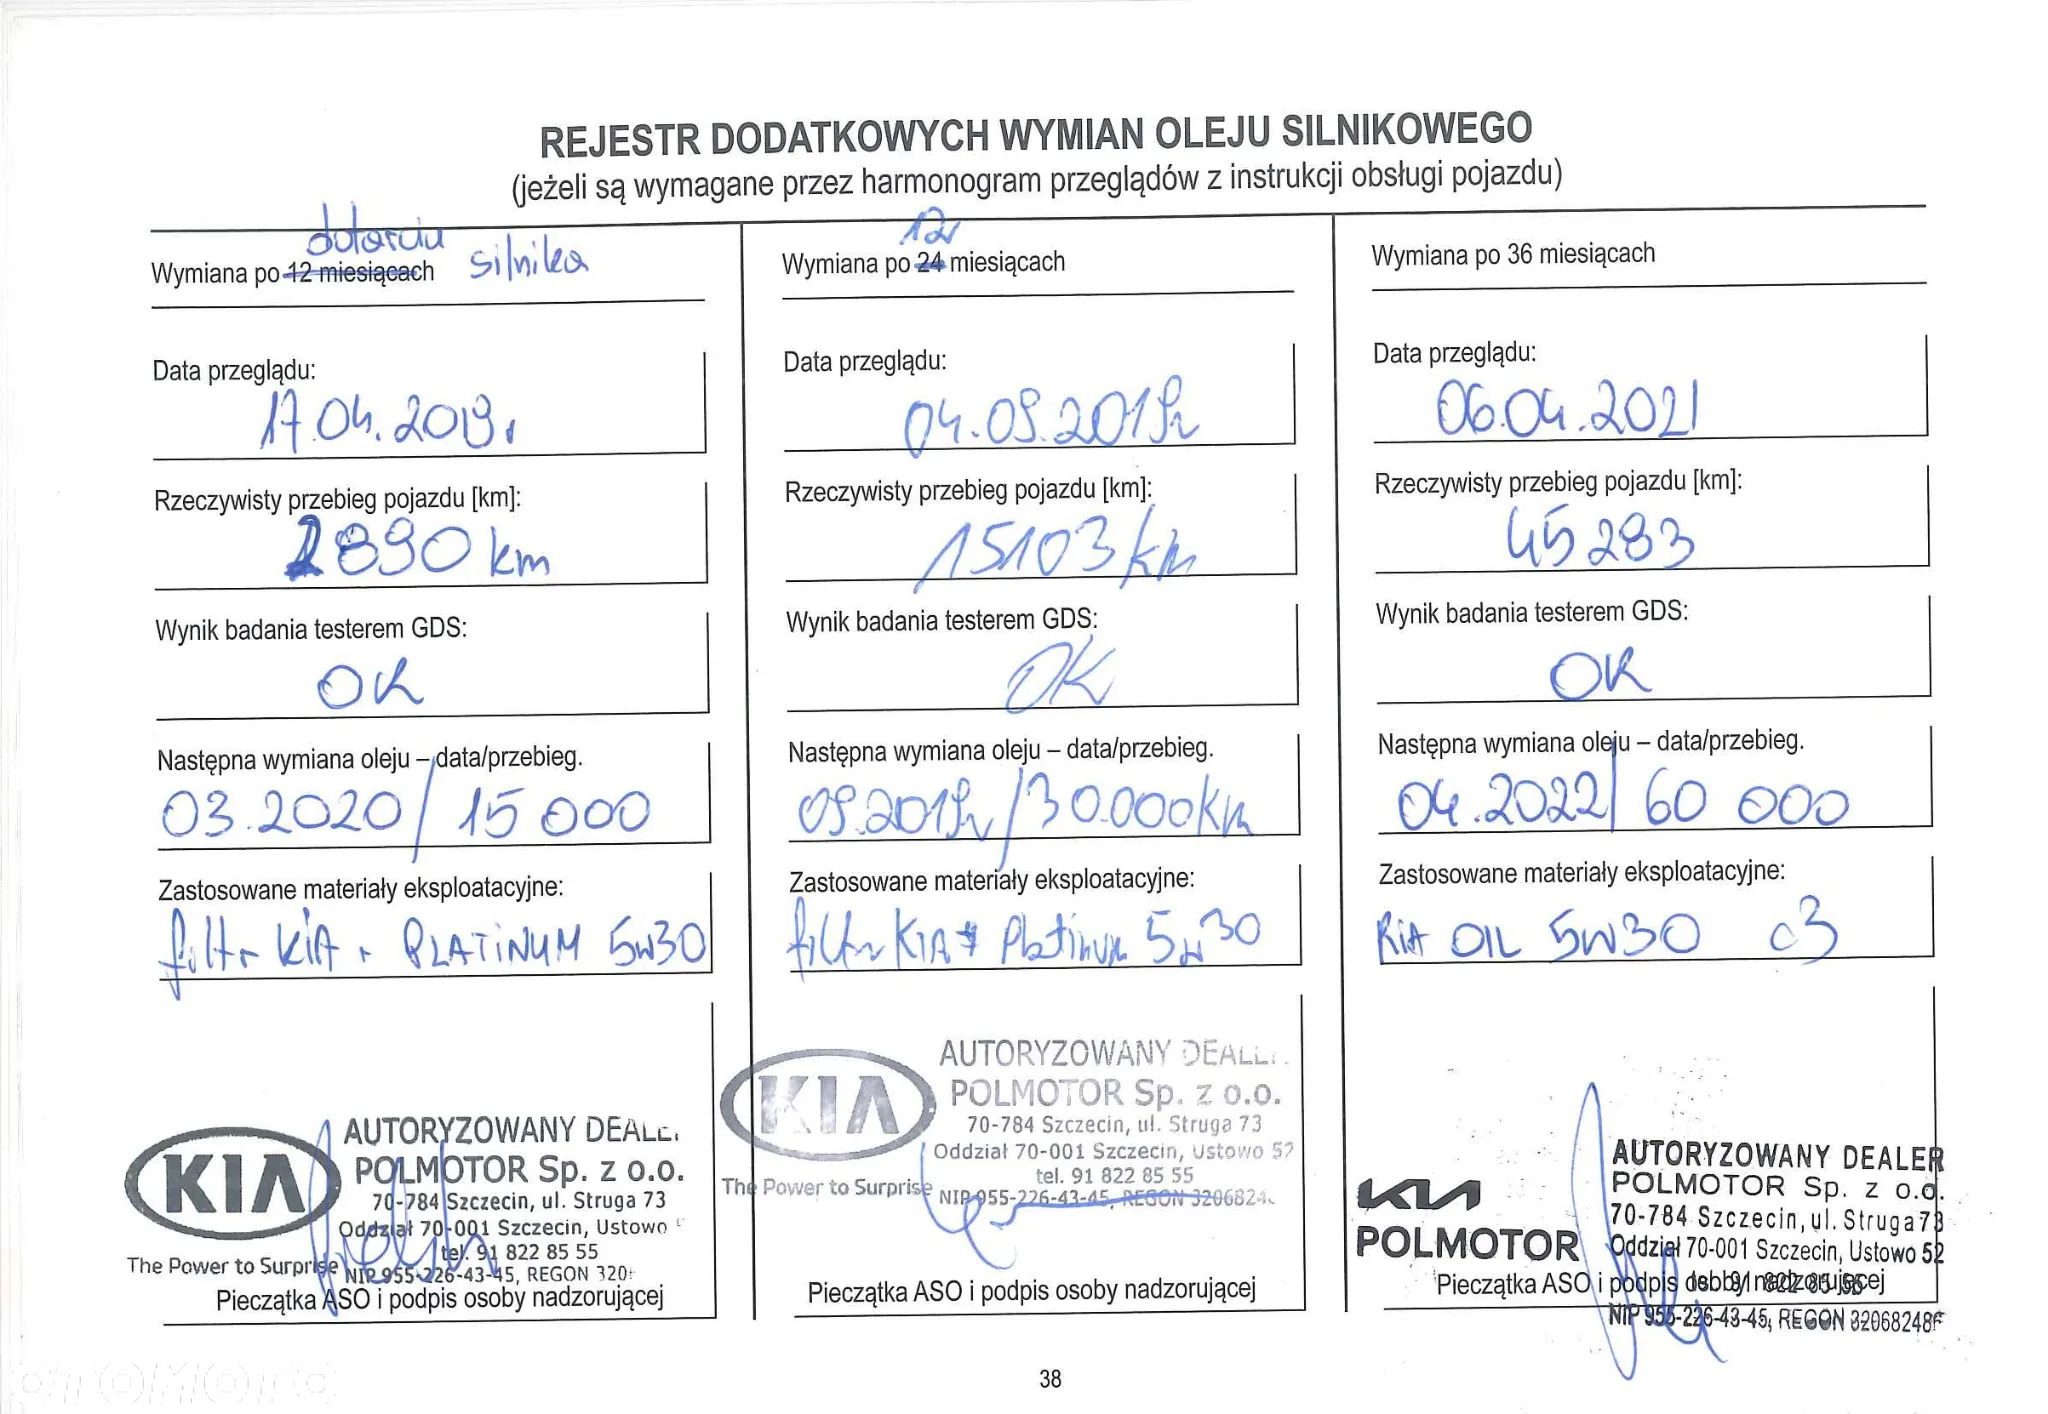 REJESTR DODATKOWYCH WYMIAN OLEJU SILNIKOWEGO
(jeżeli są wymagane przez harmonogram przeglądów z instrukcji obsługi pojazdu)
dotarciu
Wymiana po 12 miesiącach silnika
Data przeglądu:
17.04.2019r
Rzeczywisty przebieg pojazdu [km]:
2890 km
Wynik badania testerem GDS:
OK
Następna wymiana oleju – data/przebieg.
03.2020/15 000
Zastosowane materiały eksploatacyjne:
filtr KIA + PLATINUM 5W30
KIA
AUTORYZOWANY DEALE
POLMOTOR Sp. z o.o.
70-784 Szczecin, ul. Struga 73
Oddział 70-001 Szczecin, Ustowo
tel. 91 822 85 55
The Power to Surprise
NIP 955-226-43-45, REGON 320
Pieczątka ASO i podpis osoby nadzorującej
12
Wymiana po 24 miesiącach
Data przeglądu:
04.09.2019r
Rzeczywisty przebieg pojazdu [km]:
15103 km
Wynik badania testerem GDS:
OK
Następna wymiana oleju – data/przebieg.
09.2019r/30.000km
Zastosowane materiały eksploatacyjne:
filtr KIA + Platinum 5w30
KIA
AUTORYZOWANY DEALE
POLMOTOR Sp. z o.o.
70-784 Szczecin, ul. Struga 73
Oddział 70-001 Szczecin, Ustowo 52
tel. 91 822 85 55
The Power to Surprise
NIP 955-226-43-45, REGON 3206824
Pieczątka ASO i podpis osoby nadzorującej
Wymiana po 36 miesiącach
Data przeglądu:
06.04.2021
Rzeczywisty przebieg pojazdu [km]:
45 283
Wynik badania testerem GDS:
OK
Następna wymiana oleju – data/przebieg.
04.2022/60 000
Zastosowane materiały eksploatacyjne:
KiA OIL 5W30 c3
KIA
POLMOTOR
AUTORYZOWANY DEALER
POLMOTOR Sp. z o.o.
70-784 Szczecin, ul. Struga 73
Oddział 70-001 Szczecin, Ustowo 52
tel. 91 822 85 55
Pieczątka ASO i podpis osoby nadzorującej
NIP 955-226-43-45, REGON 320682486
38
OTOMOTO